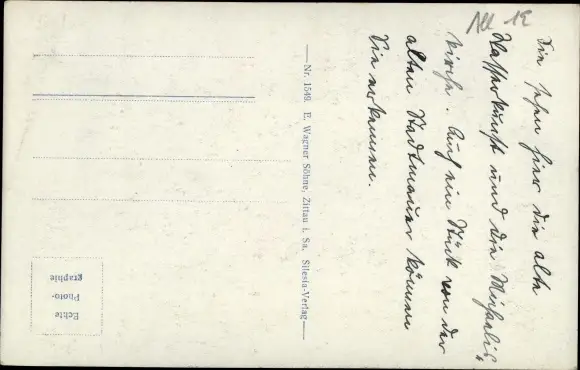 All 12
Sie sehen hier die alte
Wasserkunst und die Michaelis-
kirche. Auch ein Stück von der
alten Stadtmauer können
Sie erkennen.
Nr. 1549. E. Wagner Söhne, Zittau i. Sa. Silesia-Verlag
Echte
Photo-
graphie